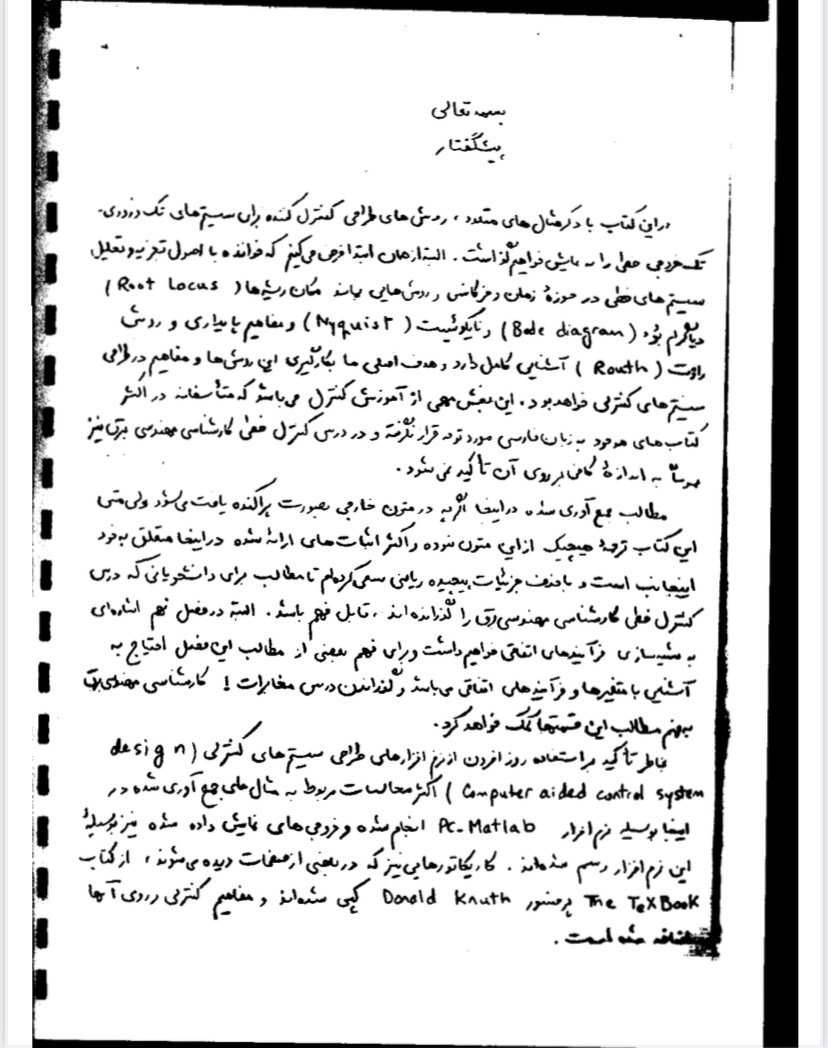 بسمه تعالی
پیشگفتار
در این کتاب با ذکر مثال های متعدد ، روش های طراحی کنترل کننده برای سیستم های تک ورودی-
تک خروجی خطی را به نمایش خواهیم گذاشت . البته از همان ابتدا فرض می کنیم که خواننده با اصول تجزیه و تحلیل
سیستم های خطی در حوزهٔ زمان و فرکانس و روش هایی مانند مکان ریشه ها ( Root Locus )
دیاگرام بُود ( Bode diagram ) و نایکوئیست ( Nyquist ) و مفاهیم پایداری و روش
راوث ( Routh ) آشنایی کامل دارد و هدف اصلی ما بکارگیری این روش ها و مفاهیم در طراحی
سیستم های کنترلی خواهد بود . این بخش مهمی از آموزش کنترل می باشد که متأسفانه در اکثر
کتاب های موجود به زبان فارسی مورد توجه قرار نگرفته و در درس کنترل خطی کارشناسی مهندسی برق نیز
عموماً به اندازهٔ کافی بر روی آن تأکید نمی شود .
مطالب جمع آوری شده در اینجا اگرچه در متون خارجی بصورت پراکنده یافت می شود ولی متن
این کتاب ترجمهٔ هیچیک از این متون نبوده و اکثر اثبات های ارائه شده در اینجا متعلق به خود
اینجانب است و با حذف جزئیات پیچیده ریاضی سعی کرده ام تا مطالب برای دانشجویانی که درس
کنترل خطی کارشناسی مهندسی برق را گذرانده اند ، قابل فهم باشد . البته در فصل نهم اشاره ای
به شبیه سازی فرآیندهای اتفاقی خواهیم داشت و برای فهم بعضی از مطالب این فصل احتیاج به
آشنایی با متغیرها و فرآیندهای اتفاقی می باشد و گذراندن درس مخابرات 1 کارشناسی مهندسی برق
به فهم مطالب این قسمتها کمک خواهد کرد .
بخاطر تأکید بر استفاده روز افزون از نرم افزارهای طراحی سیستم های کنترلی ( design
Computer aided control system ) اکثر محاسبات مربوط به مثال های جمع آوری شده در
اینجا بوسیله نرم افزار PC-Matlab انجام شده و خروجی های نمایش داده شده نیز بوسیلهٔ
این نرم افزار رسم شده اند . کاریکاتورهایی نیز که در بعضی از صفحات دیده می شوند ، از کتاب
The TeXBook پروفسور Donald Knuth کپی شده اند و مفاهیم کنترلی بر روی آنها
اضافه شده است .